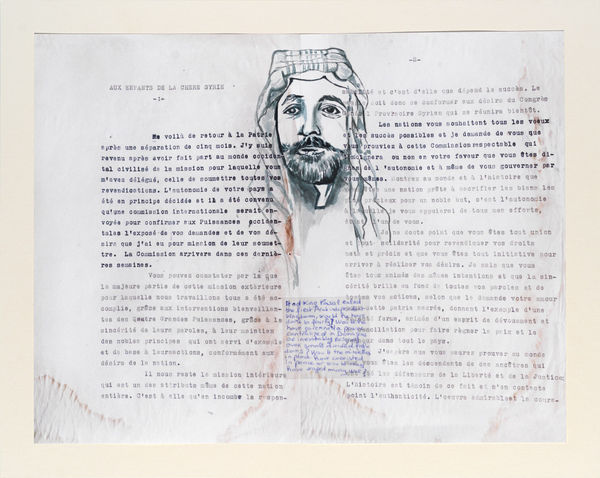 AUX ENFANTS DE LA CHERE SYRIE
-1-
Me voilà de retour à la Patrie
après une séparation de cinq mois. J'y suis
revenu après avoir fait part au monde occiden
tal civilisé de la mission pour laquelle vous
m'avez délégué, celle de soumettre toutes vos
revendications. L'autonomie de votre pays a
été en principe décidée et il a été convenu
qu'une commission internationale serait en-
voyée pour confirmer aux Puissances occiden-
tales l'exposé de vos demandes et de vos dé-
sirs que j'ai eu pour mission de leur soumet-
tre. La Commission arrivera dans ces derniè-
res semaines.
Vous pouvez constater par là que
la majeure partie de cette mission extérieure
pour laquelle nous travaillons tous a été ac-
complie, grâce aux interventions bienveillan-
tes des Quatre Grandes Puissances, grâce à la
sincérité de leurs paroles, à leur maintien
des nobles principes qui ont servi d'exemple
et de base à leurs actions, conformément aux
désirs de la nation.
Il nous reste la mission intérieure
qui est un des attributs même de cette nation
entière. C'est à elle qu'en incombe la respon-
-2-
sabilité et c'est d'elle que dépend le succès. Le
doit donc se conformer aux désirs du Congrès
Provisoire Syrien qui se réunira bientôt.
Les nations vous souhaitent tous les voeux
et les succès possibles et je demande de vous que
vous prouviez à cette Commission respectable qui
témoignera ou non en votre faveur que vous êtes di-
gnes de l'autonomie et à même de vous gouverner par
vous-mêmes. Montrez au monde et à l'histoire que
une nation prête à sacrifier les biens les
précieux pour un noble but, c'est l'autonomie
à laquelle je vous appuierai de tous mes efforts,
d'un de vous.
Je ne doute point que vous êtes tout union
et tout solidarité pour revendiquer vos droits
nets et précis et que vous êtes tout initiative pour
arriver à réaliser vos désirs. Je sais que vous
êtes tous animés des mêmes intentions et que la sin-
cérité brille au fond de toutes vos paroles et de
toutes vos actions, selon que le demande votre amour
cette patrie sacrée, donnent l'exemple d'une
animée d'un esprit de dévouement et
conciliation pour faire régner la paix et le
dans tout le pays.
J'espère que vous saurez prouver au monde
vous êtes les descendants de ces ancêtres qui
les défenseurs de la Liberté et de la Justice
L'histoire est témoin de ce fait et n'en conteste
point l'authenticité. L'oeuvre admirablement la coura-
Had King Faisal
the first Arab
Kingdom, would he have